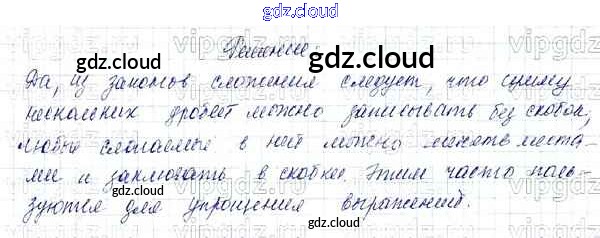 gdz.cloud
Решение:
gdz.cloud
Да, из законов сложения следует, что сумму
нескольких дробей можно записывать без скобок,
любые слагаемые в ней можно менять места-
ми и заключать в скобки. Этим часто поль-
gdz.cloud
gdz.cloud
зуются для упрощения выражений.
gdz.cloud